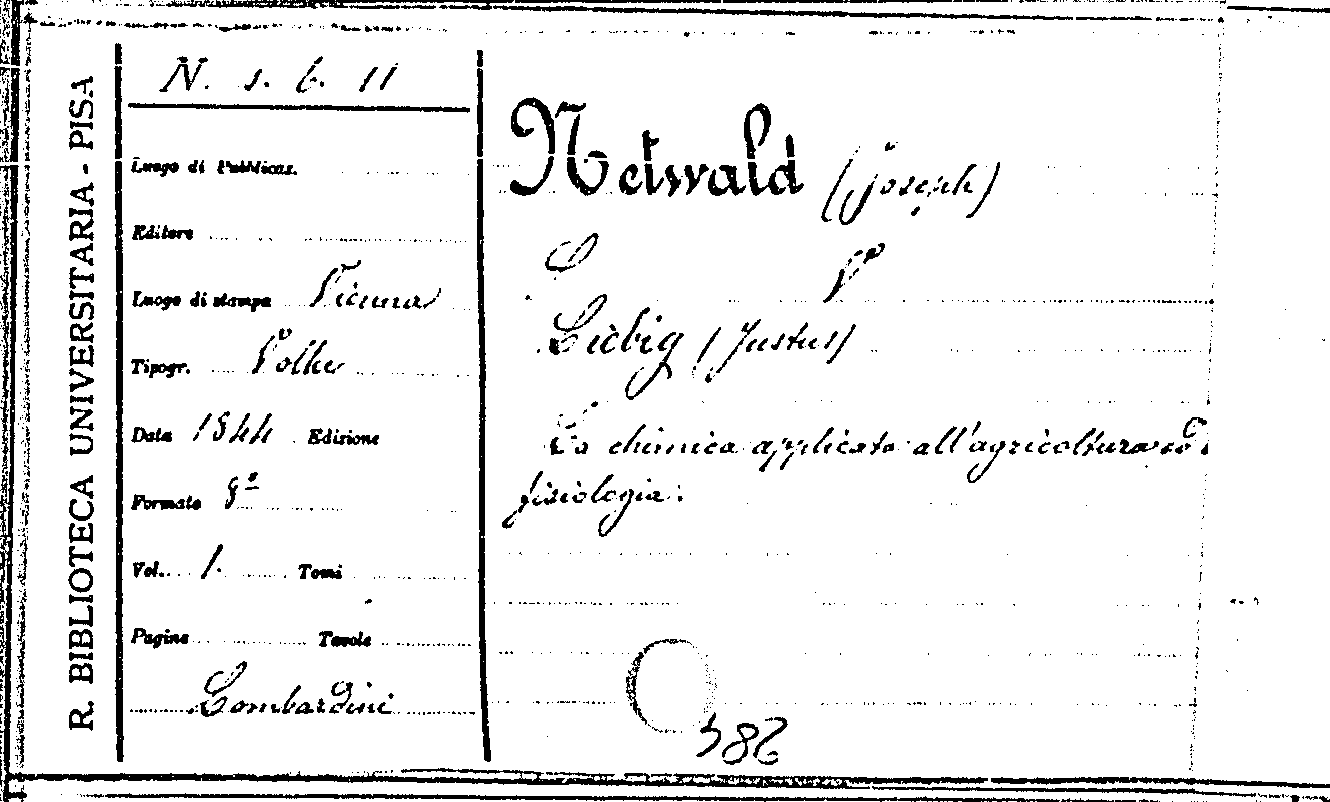 R. BIBLIOTECA UNIVERSITARIA - PISA
N. s. 6. 11
Luogo di Pubblicaz.
Editore
Luogo di stampa Vienna
Tipogr. Volke
Data 1844 Edizione
Formato 8º
Vol. 1. Tomi
Pagine Tavole
Lombardini
Netwald (Joseph)
Vº
Liebig (Justus)
La chimica applicata all'agricoltura ed
fisiologia.
482